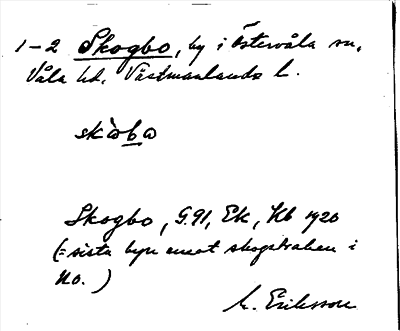 1-2 Skogbo, by i Östervåla sn,
Våla hd, Västmanlands l.
skòbo
Skogbo, G.91, Ek, Hb 1920
(= sista byn emot skogstrakten i
no.)
M. Eriksson